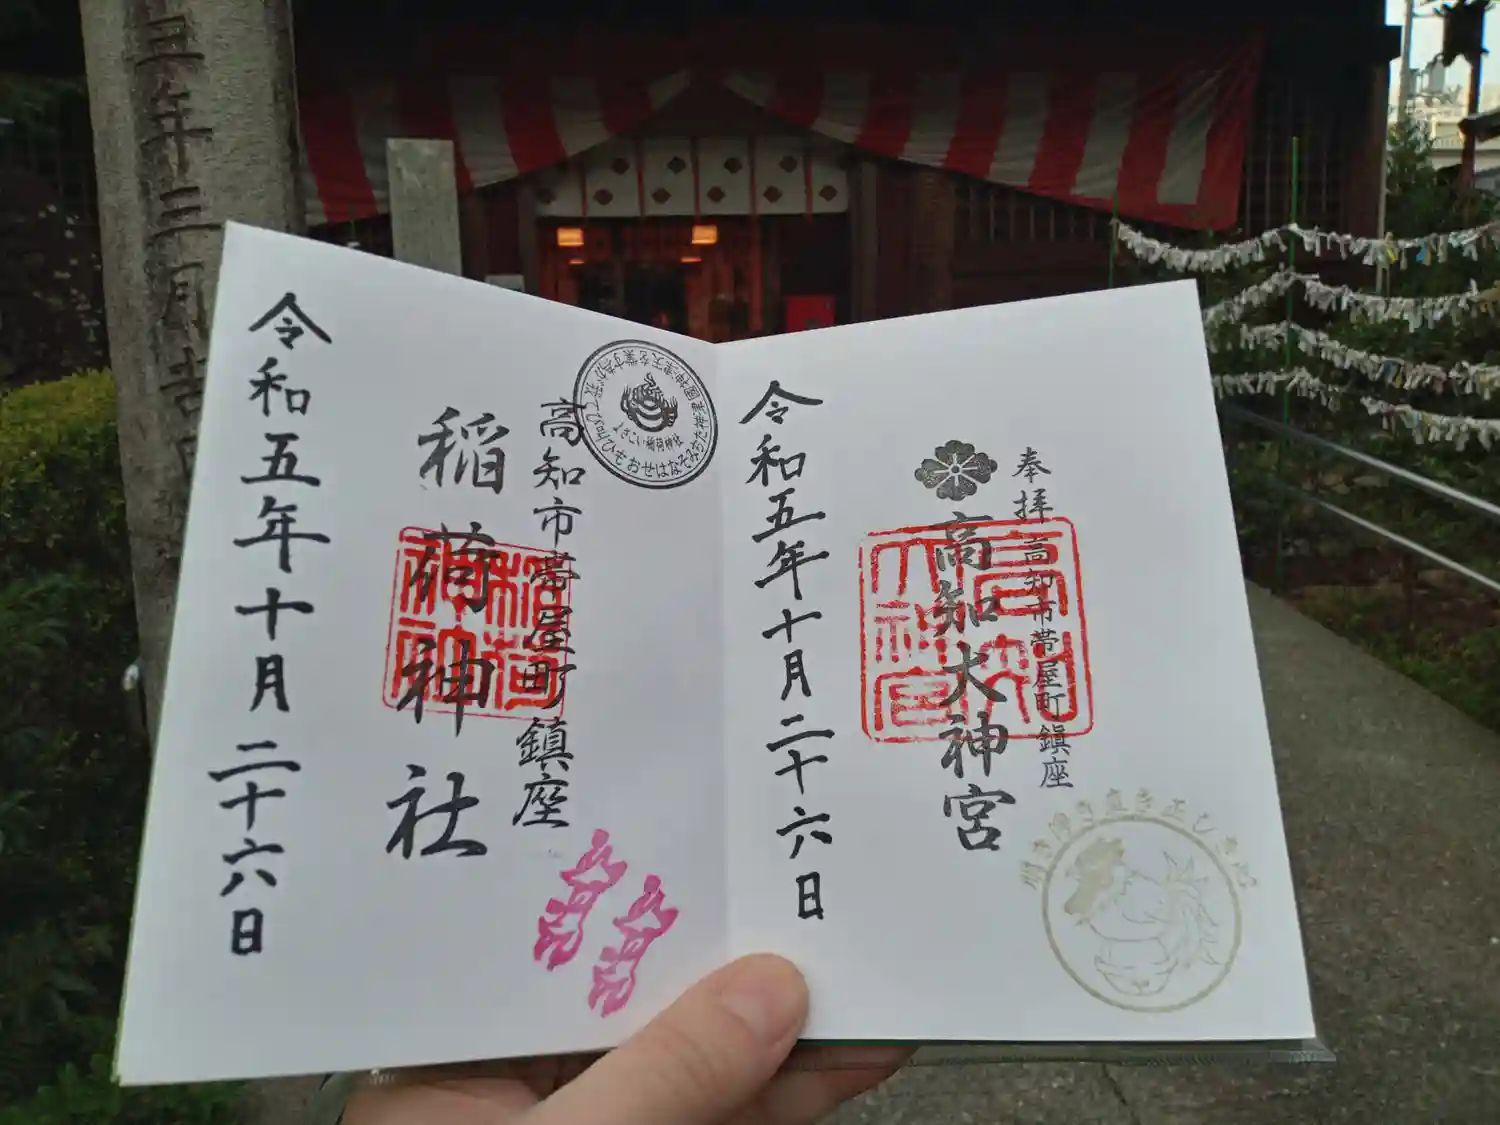 奉拝
高知市帯屋町鎮座
高知大神宮
高知大神宮
令和五年十月二十六日
高知市帯屋町鎮座
稲荷神社
稲荷神社
令和五年十月二十六日
よさこい稲荷神社
三年三月吉